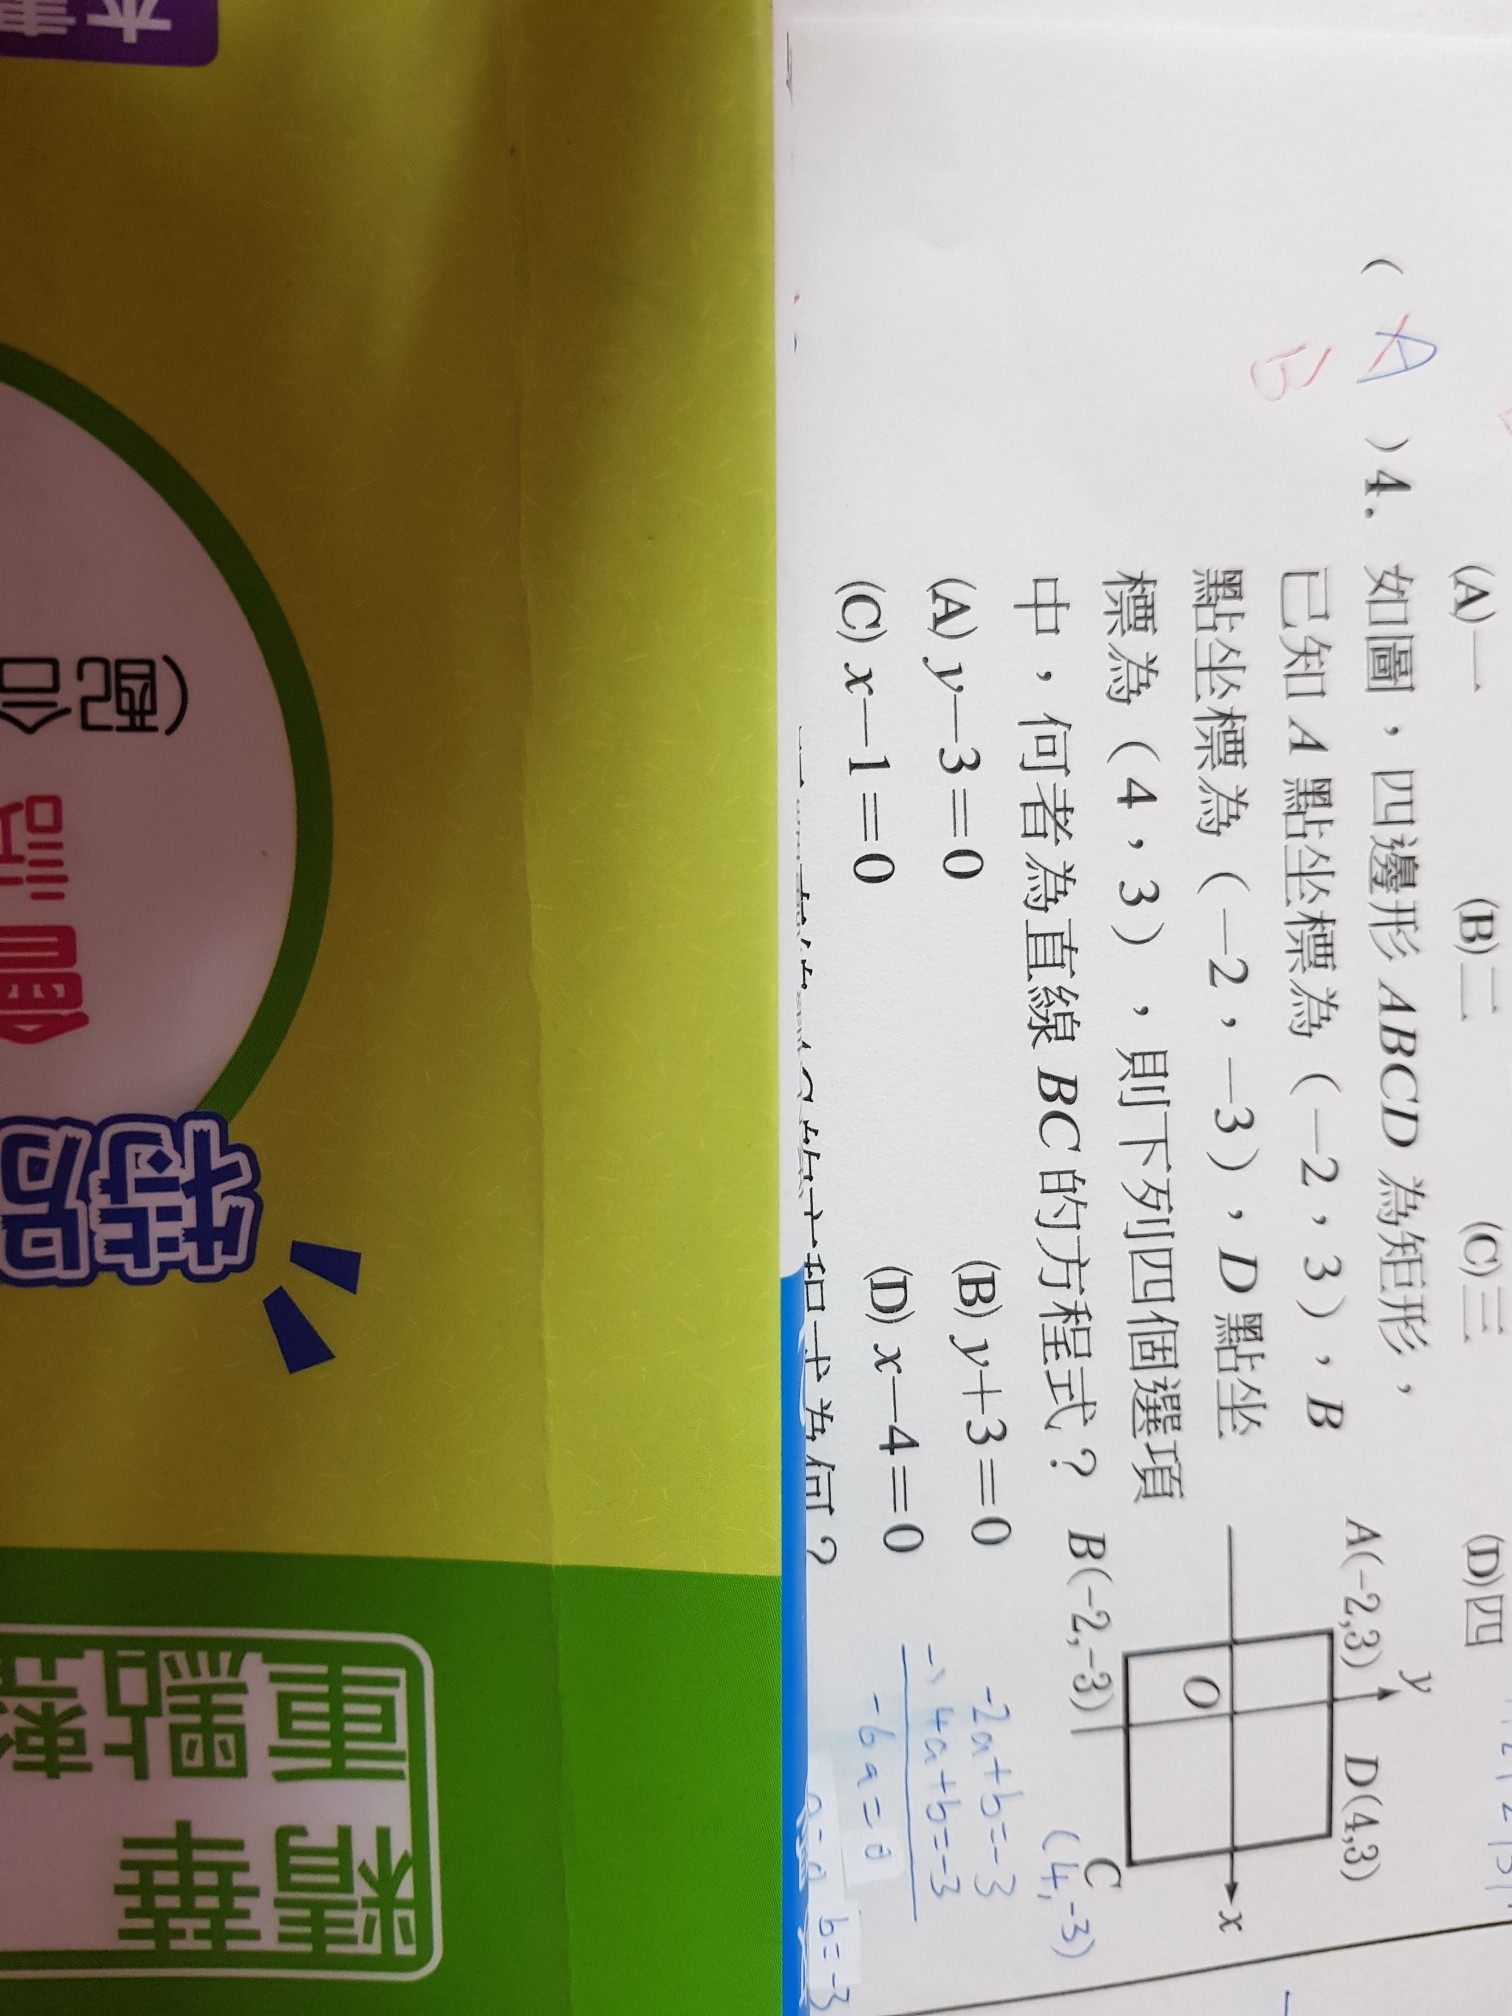 (A)一 (B)二 (C)三 (D)四
( A ) 4. 如圖，四邊形 ABCD 為矩形，
B
已知 A 點坐標為（−2，3），B
點坐標為（−2，−3），D 點坐
標為（4，3），則下列四個選項
中，何者為直線 BC 的方程式？
(A) y−3=0 (B) y+3=0
(C) x−1=0 (D) x−4=0
y
A(−2,3) D(4,3)
O
x
B(−2,−3) C
(4,-3)
-2a+b=-3
-) 4a+b=-3
-6a=0
a=0 b=-3
方程式為何？
本書
(配合
重點整
精華